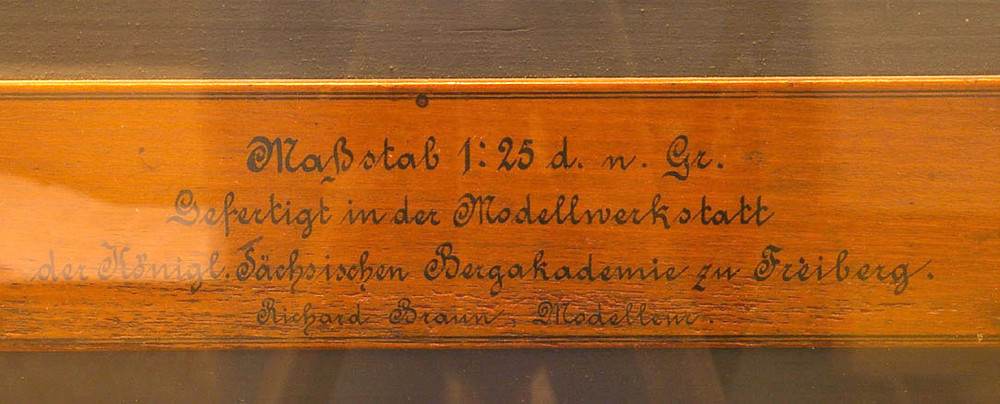 Maßstab 1:25 d. n. Gr.
Gefertigt in der Modellwerkstatt
der Königl. Sächsischen Bergakademie zu Freiberg.
Richard Braun, Modelleur.